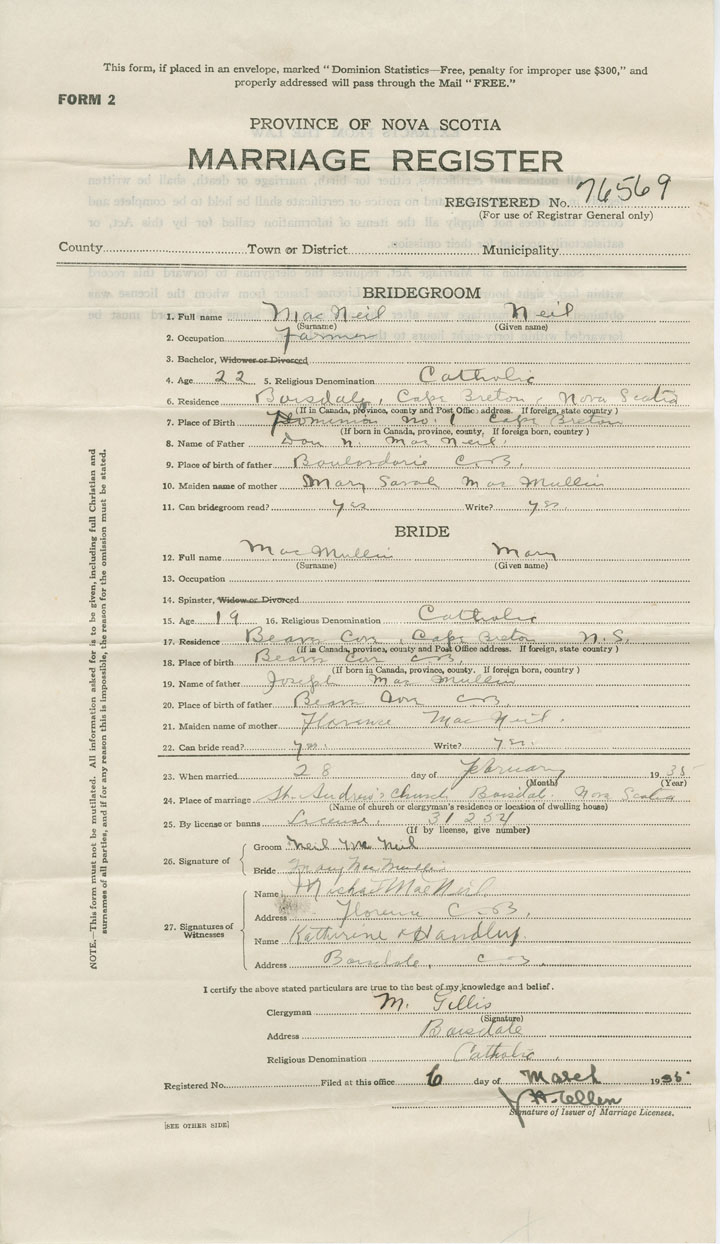 This form, if placed in an envelope, marked "Dominion Statistics—Free, penalty for improper use $300," and
properly addressed will pass through the Mail "FREE."
FORM 2
PROVINCE OF NOVA SCOTIA
MARRIAGE REGISTER
REGISTERED No. 76569
(For use of Registrar General only)
County Town or District Municipality
BRIDEGROOM
1. Full name MacNeil Neil
(Surname) (Given name)
2. Occupation Farmer
3. Bachelor, Widower or Divorced
4. Age 22 5. Religious Denomination Catholic
6. Residence Boisdale, Cape Breton, Nova Scotia
(If in Canada, province, county and Post Office address. If foreign, state country)
7. Place of Birth Dominion No. 1 Cape Breton
(If born in Canada, province, county. If foreign born, country)
8. Name of Father Dan N. MacNeil
9. Place of birth of father Boulardarie C.B.
10. Maiden name of mother Mary Sarah MacMullin
11. Can bridegroom read? yes Write? yes.
BRIDE
12. Full name MacMullin Mary
(Surname) (Given name)
13. Occupation
14. Spinster, Widow or Divorced
15. Age 19 16. Religious Denomination Catholic
17. Residence Beaver Cove, Cape Breton N.S.
(If in Canada, province, county and Post Office address. If foreign, state country)
18. Place of birth Beaver Cove C.B.
(If born in Canada, province, county. If foreign born, country)
19. Name of father Joseph MacMullin
20. Place of birth of father Beaver Cove C.B.
21. Maiden name of mother Florence MacNeil.
22. Can bride read? yes. Write? yes.
23. When married 28 day of February 1935
(Month) (Year)
24. Place of marriage St. Andrew's Church, Boisdale. Nova Scotia
(Name of church or clergyman's residence or location of dwelling house)
25. By license or banns License. 31254
(If by license, give number)
26. Signature of Groom Neil McNeil
Bride Mary MacMullin
27. Signatures of Witnesses
Name Michael MacNeil
Address Florence C.B.
Name Katherine Handley
Address Boisdale, C.B.
I certify the above stated particulars are true to the best of my knowledge and belief.
Clergyman M. Gillis
(Signature)
Address Boisdale
Religious Denomination Catholic.
Registered No. Filed at this office 6 day of March 1935
Signature of Issuer of Marriage Licenses.
[SEE OTHER SIDE]
NOTE.—This form must not be mutilated. All information asked for is to be given, including full Christian and
surnames of all parties, and if for any reason this is impossible, the reason for the omission must be stated.